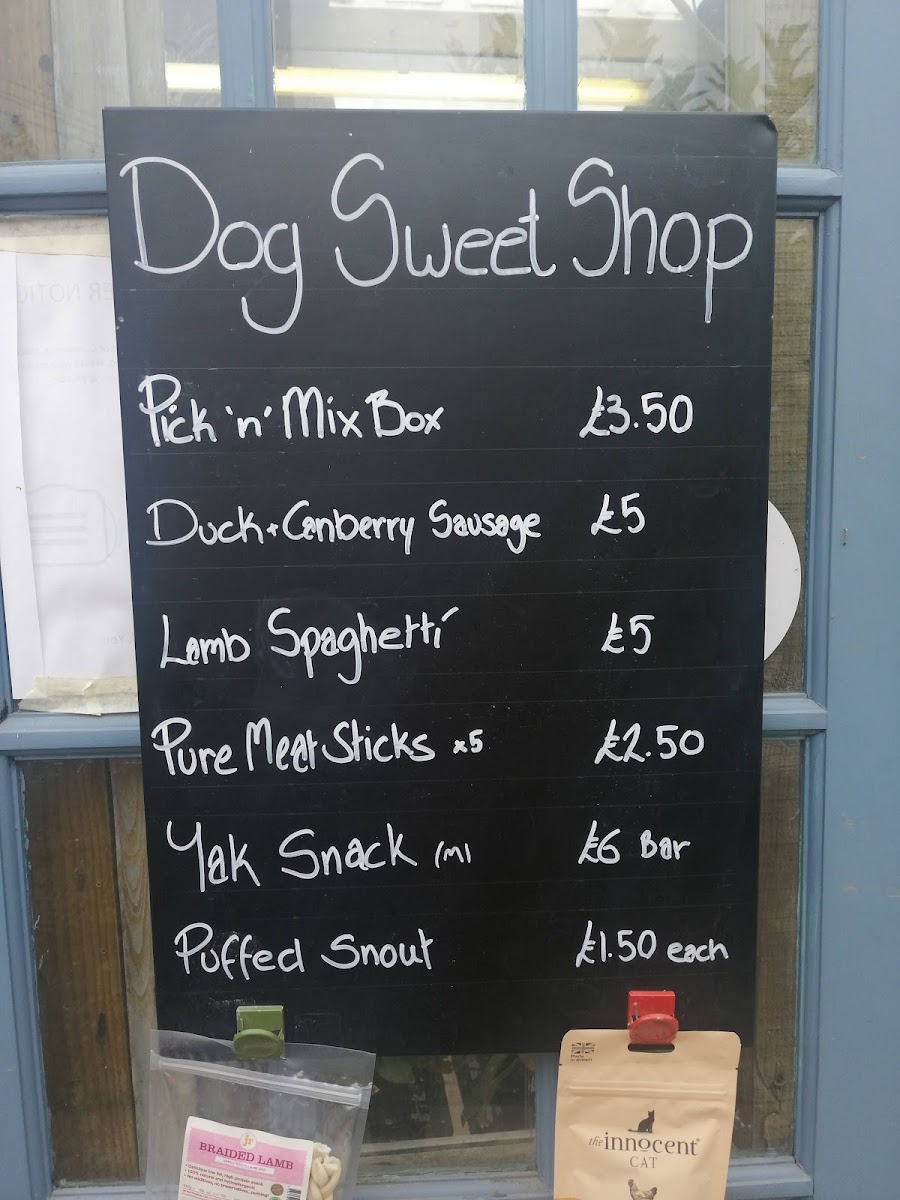 Dog Sweet Shop
Pick 'n' Mix Box £3.50
Duck + Canberry Sausage £5
Lamb Spaghetti £5
Pure Meat Sticks x5 £2.50
Yak Snack (M) £6 Bar
Puffed Snout £1.50 each
Made in Britain
jr
BRAIDED LAMB
the innocent
CAT